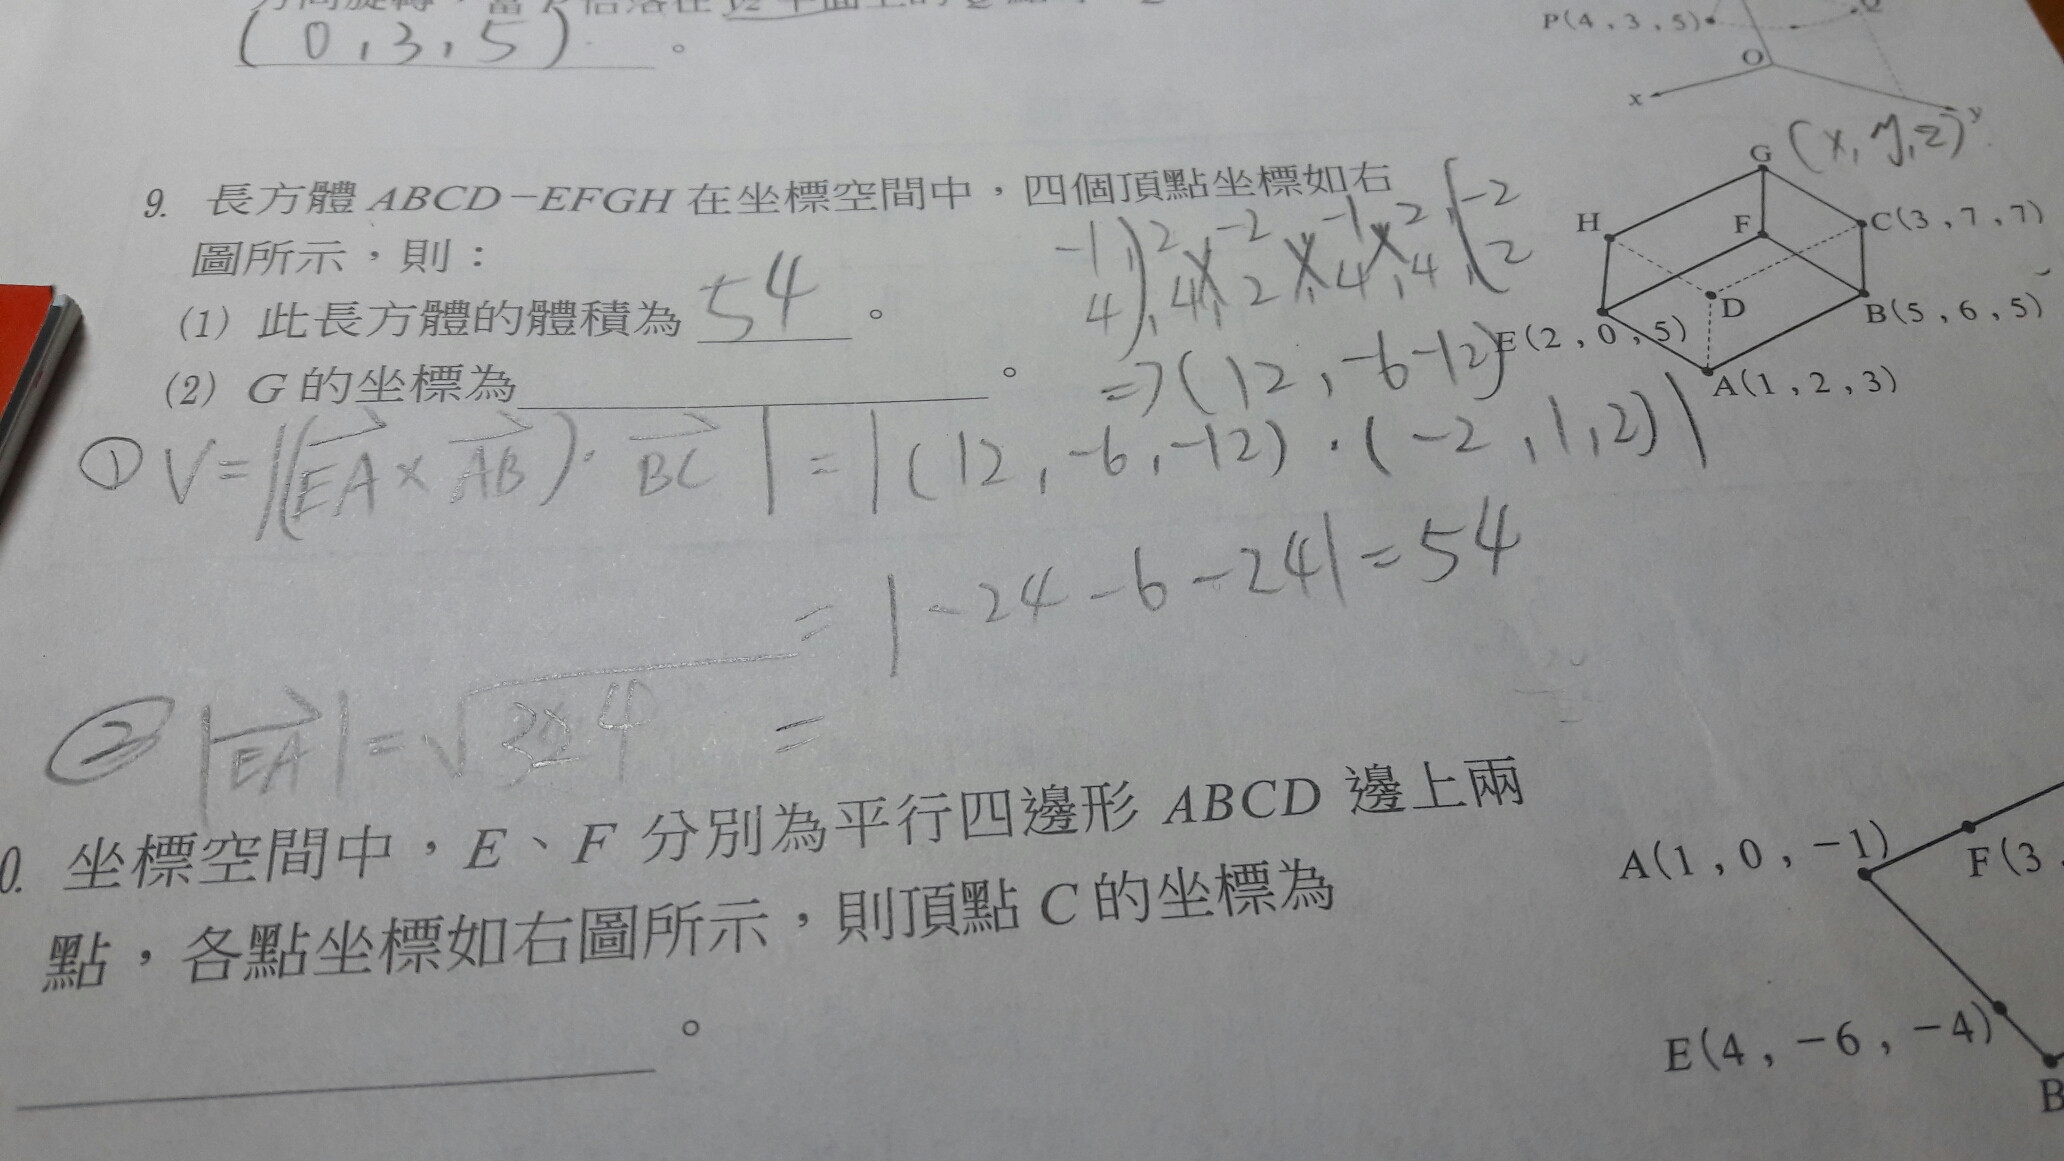 (0,3,5)。
P(4,3,5)
O
x
y
9. 長方體 ABCD-EFGH 在坐標空間中，四個頂點坐標如右
圖所示，則：
(1) 此長方體的體積為 54 。
(2) G 的坐標為 。
G (x,y,z)
H
F
C(3,7,7)
D
B(5,6,5)
E(2,0,5)
A(1,2,3)
-1 2 -2 -1 2 -2
4 4 2 4 4 2
=>(12,-6-12)
① V=|(EA×AB)·BC|=|(12,-6,-12)·(-2,1,2)|
=|-24-6-24|=54
② |EA|=√324 =
0. 坐標空間中，E、F 分別為平行四邊形 ABCD 邊上兩
點，各點坐標如右圖所示，則頂點 C 的坐標為
。
A(1,0,-1)
F(3
E(4,-6,-4)
B